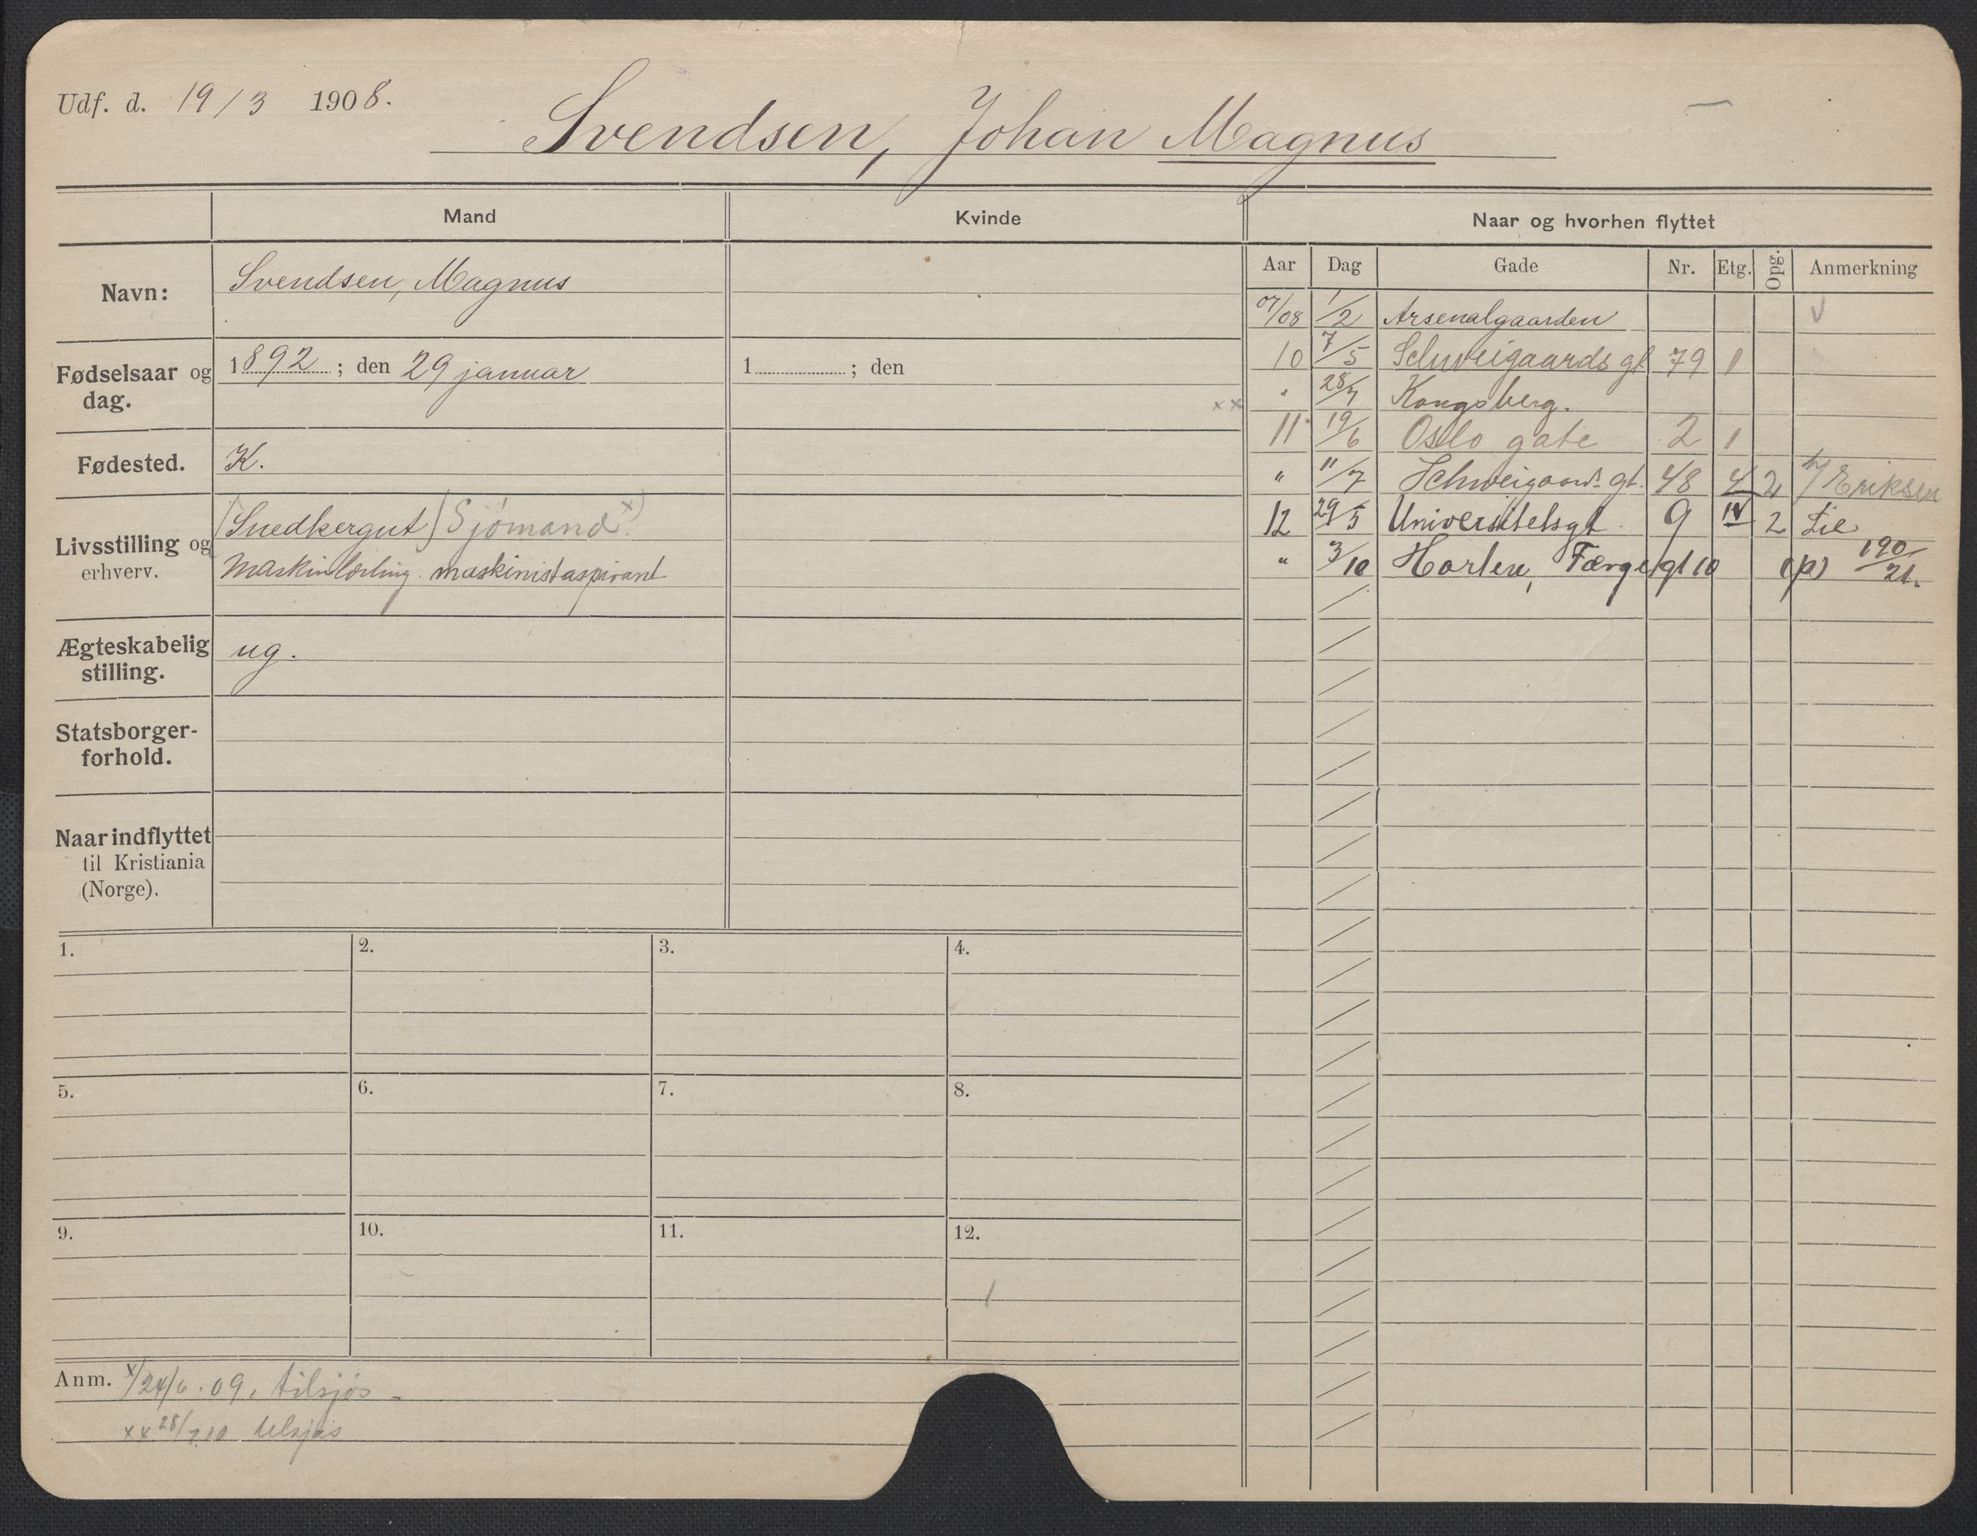 Udf. d. 19/3 1908.
Svendsen, Johan Magnus
Mand
Kvinde
Naar og hvorhen flyttet
Aar Dag Gade Nr. Etg. Opg. Anmerkning
Navn: Svendsen, Magnus
Fødselsaar og dag. 1892; den 29 januar 1 ; den
××
Fødested. K.
Livsstilling og erhverv. (Snedkergut) Sjømand ×)
Maskinlærling. maskinistaspirant
Ægteskabelig stilling. ug.
Statsborgerforhold.
Naar indflyttet til Kristiania (Norge).
07/08 1/2 Arsenalgaarden √
10 7/5 Schweigaards gt 79 1
" 28/7 Kongsberg.
11 19/6 Oslo gate 2 1
" 11/7 Schweigaards gt. 48 4 2 h/ Eriksen
12 29/5 Universitetsgt. 9 IV 2 Lie
" 3/10 Horten, Færgegt 10 (p) 190/21.
1. 2. 3. 4.
5. 6. 7. 8.
9. 10. 11. 12.
Anm. ×/24/6.09. tilsjøs
×× 28/7.10 tilsjøs